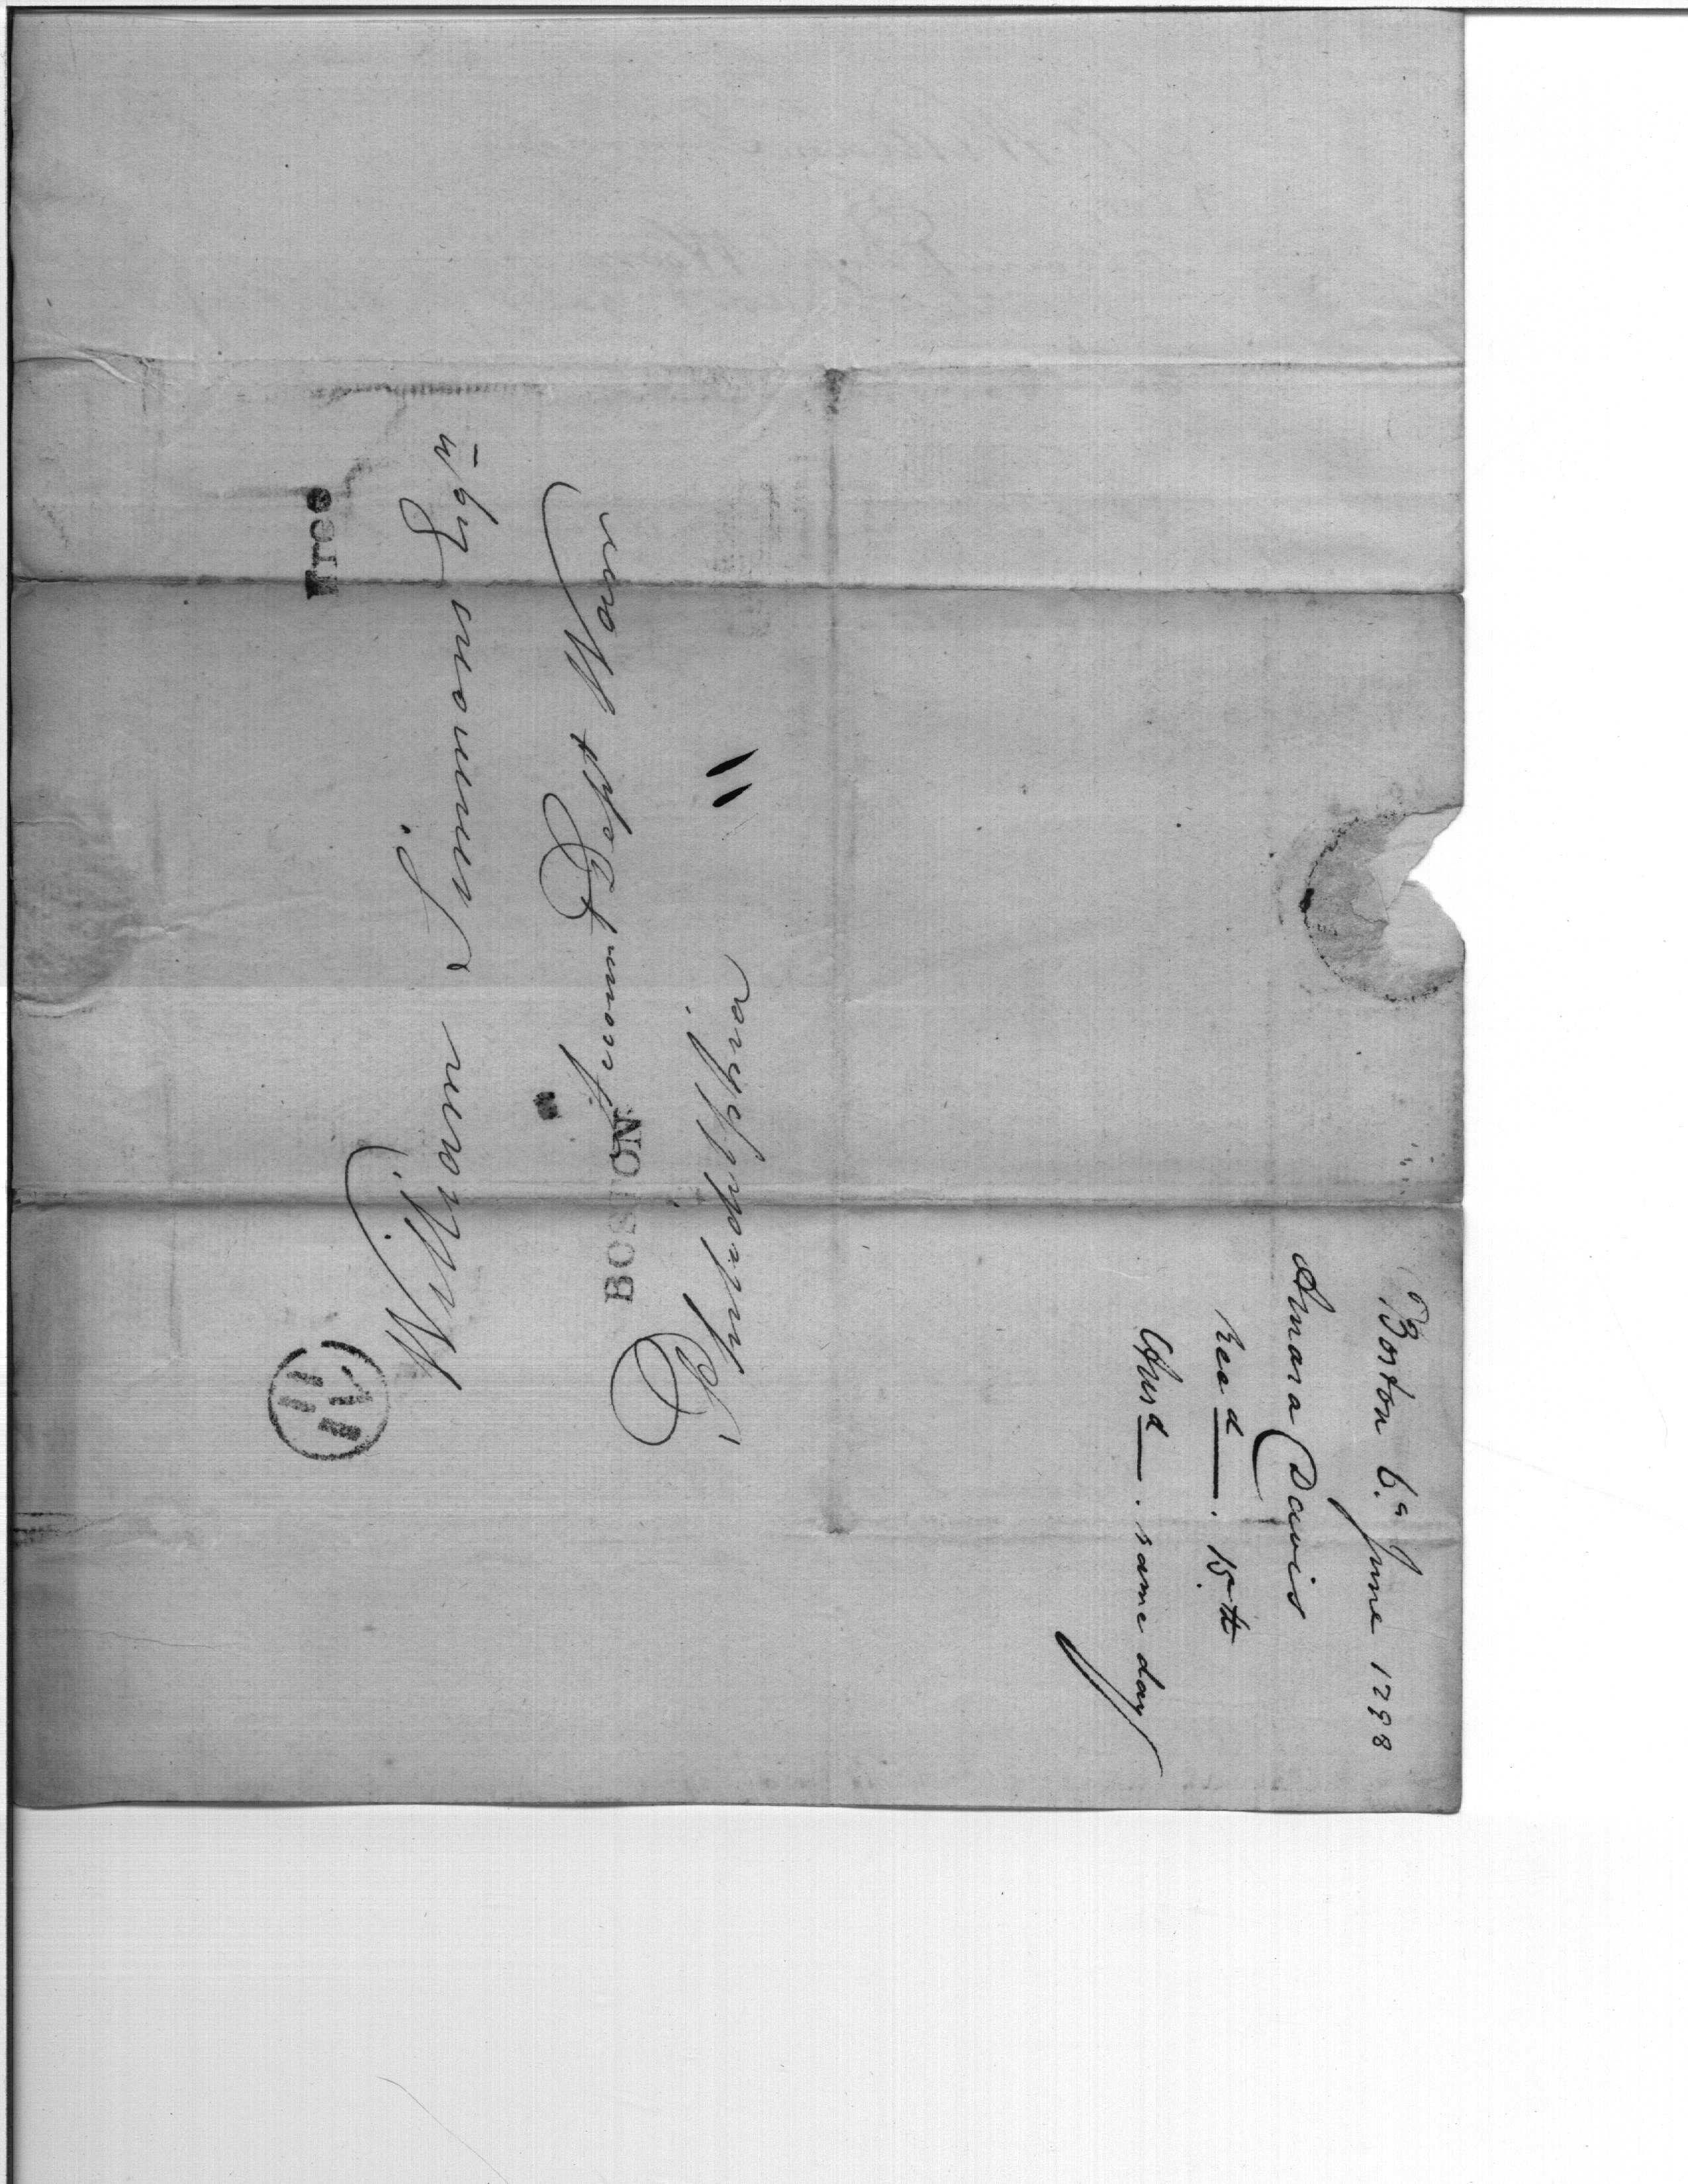 Free
William Simmons Esqr.
Accomt. Dept. of War
Philadelphia
BOSTON
Boston 6th June 1798
Amasa Davis
Recd. 15th
Ansd. same day